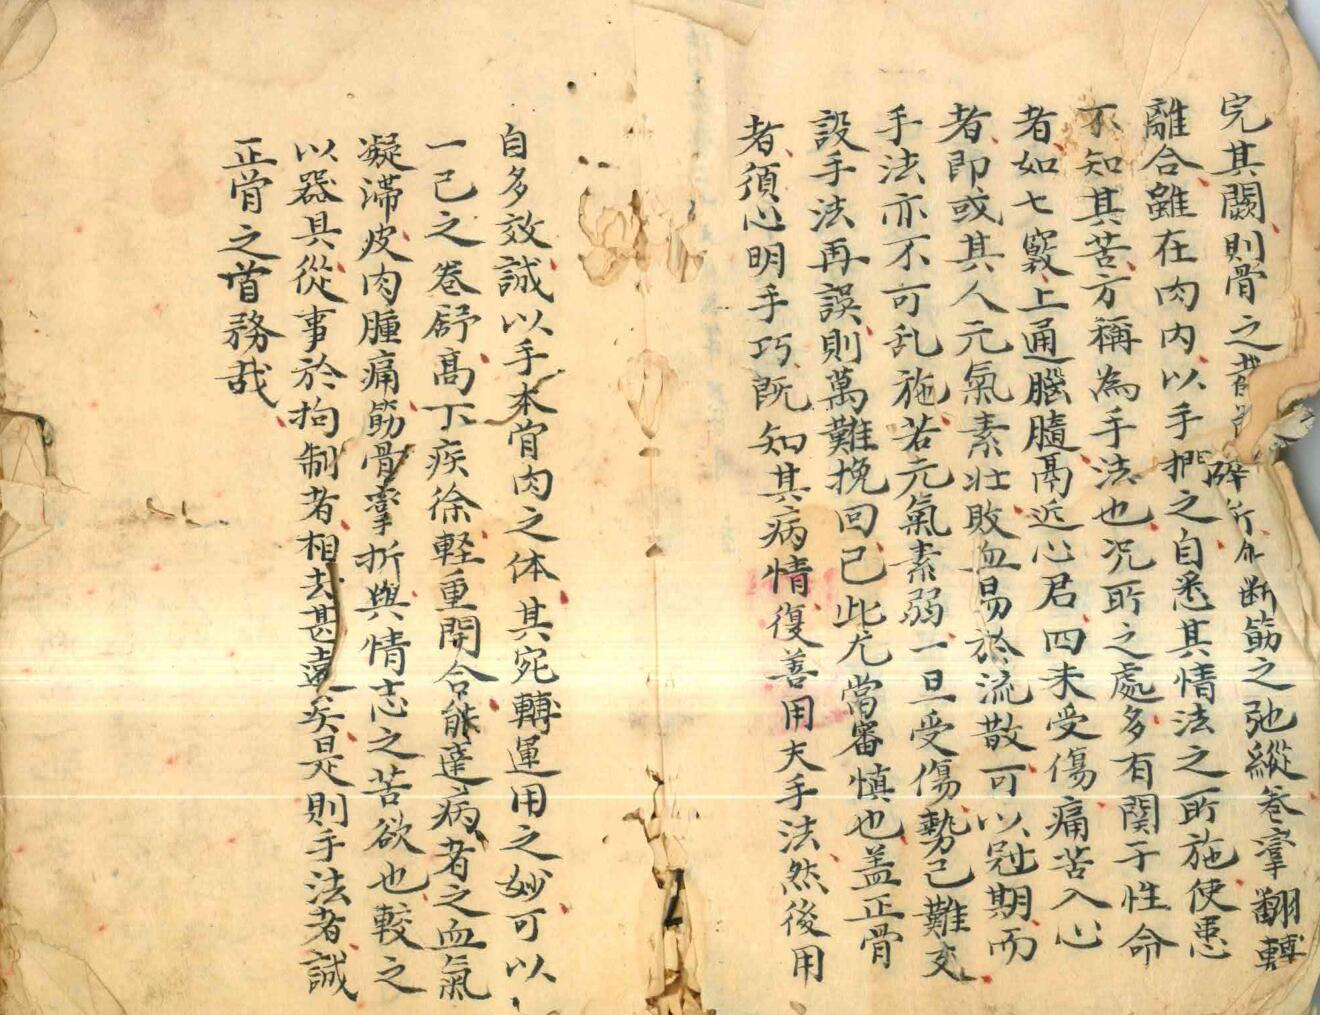 完其闕則骨之碎斷筋之弛縱卷攣翻轉
離合雖在肉內以手捫之自悉其情法之所施使患
不知其苦方稱為手法也况所之處多有関于性命
者如七竅上通腦髓鬲近心君四末受傷痛苦入心
者即或其人元氣素壯敗血易於流散可以尅期而
手法亦不可乱施若元氣素弱一旦受傷勢已難支
設手法再誤則萬難挽回已此尤當審慎也盖正骨
者須心明手巧既知其病情復善用夫手法然後用
自多效誠以手本骨肉之体其宛轉運用之妙可以
一己之卷舒高下疾徐軽重開合能達病者之血氣
凝滯皮肉腫痛筋骨攣折與情志之苦欲也較之
以器具從事於拘制者相去甚遠矣是則手法者誠
正骨之首務哉